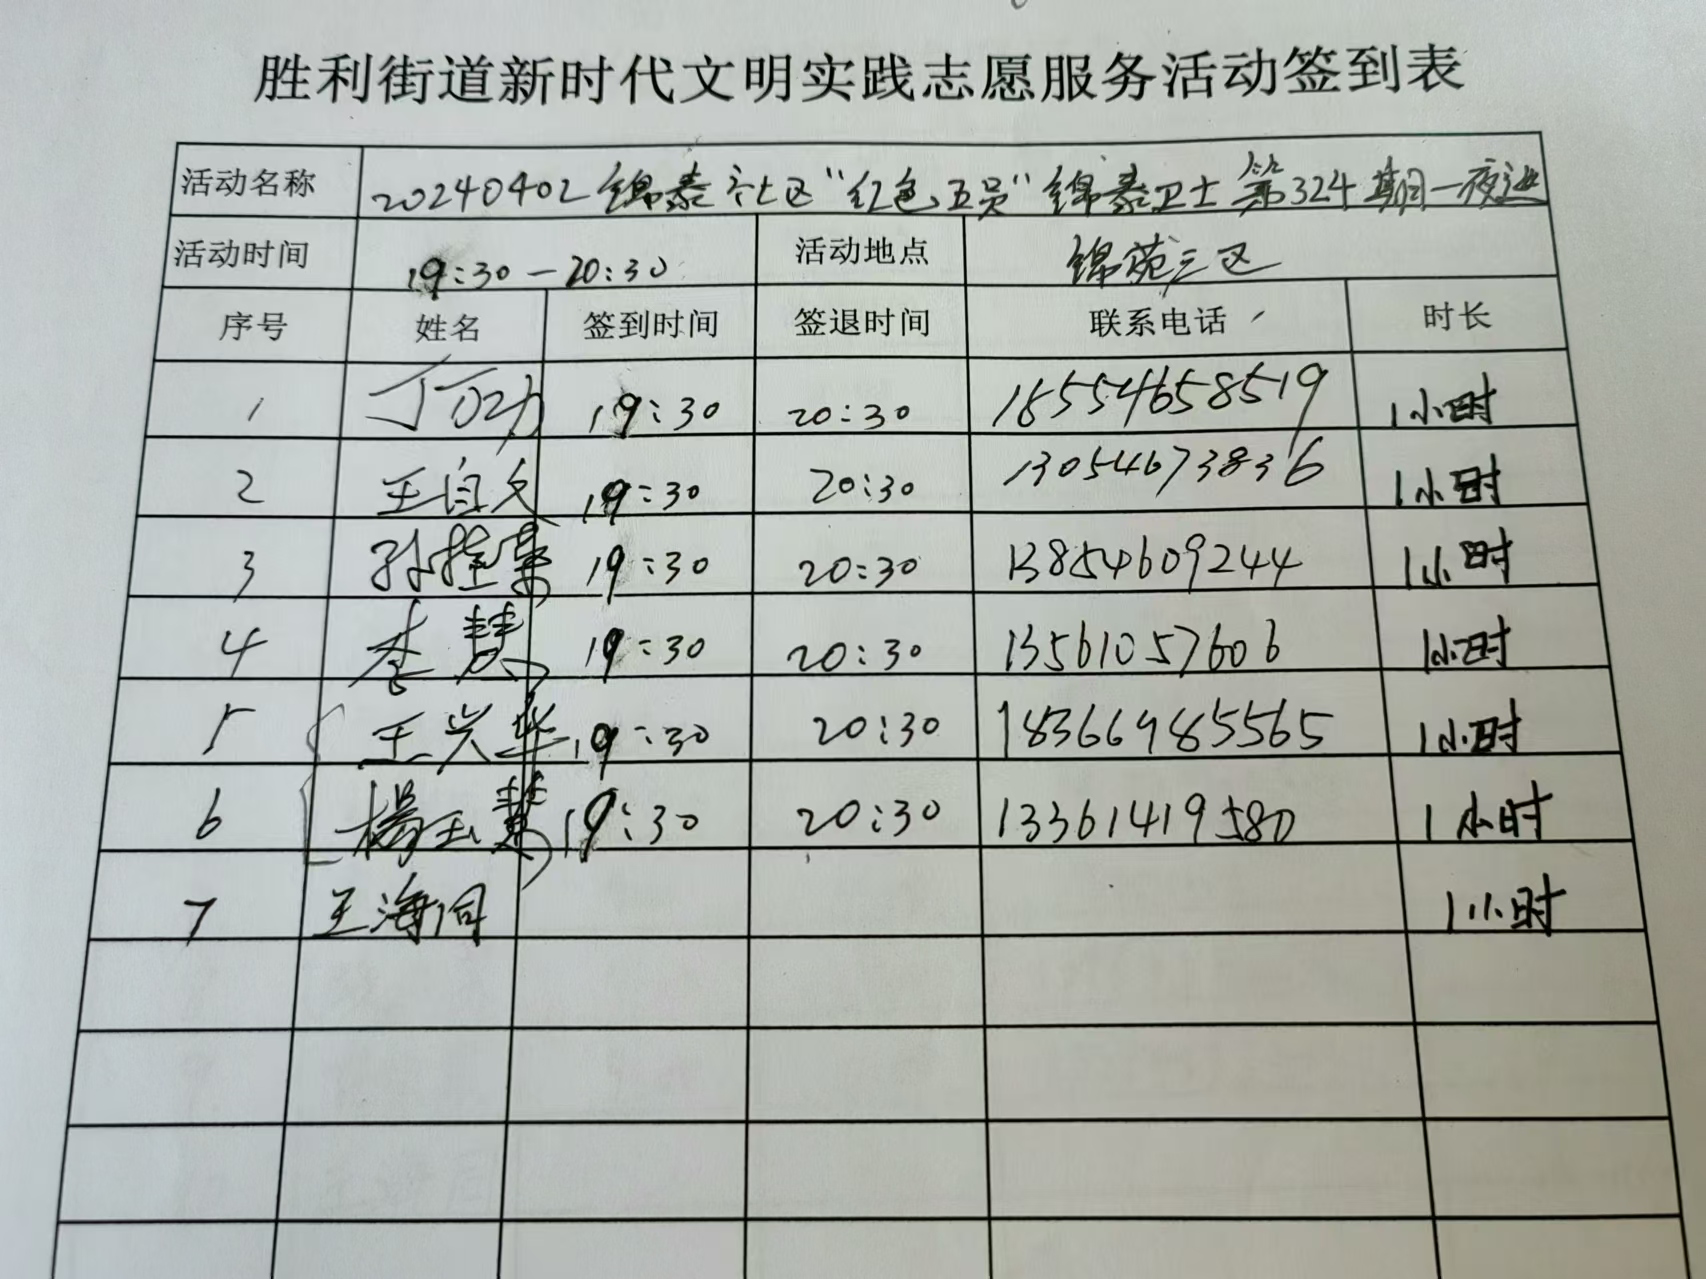 胜利街道新时代文明实践志愿服务活动签到表
活动名称 20240402锦泰社区“红色五员”锦泰卫士第324期一夜巡
活动时间 19:30-20:30 活动地点 锦苑三区
序号 姓名 签到时间 签退时间 联系电话 时长
1 19:30 20:30 18554658519 1小时
2 王自文 19:30 20:30 13054673836 1小时
3 孙 19:30 20:30 13854609244 1小时
4 李慧 19:30 20:30 13561057606 1小时
5 王兴华 19:30 20:30 18366985565 1小时
6 楊玉慧 19:30 20:30 13361419580 1小时
7 王海同 1小时